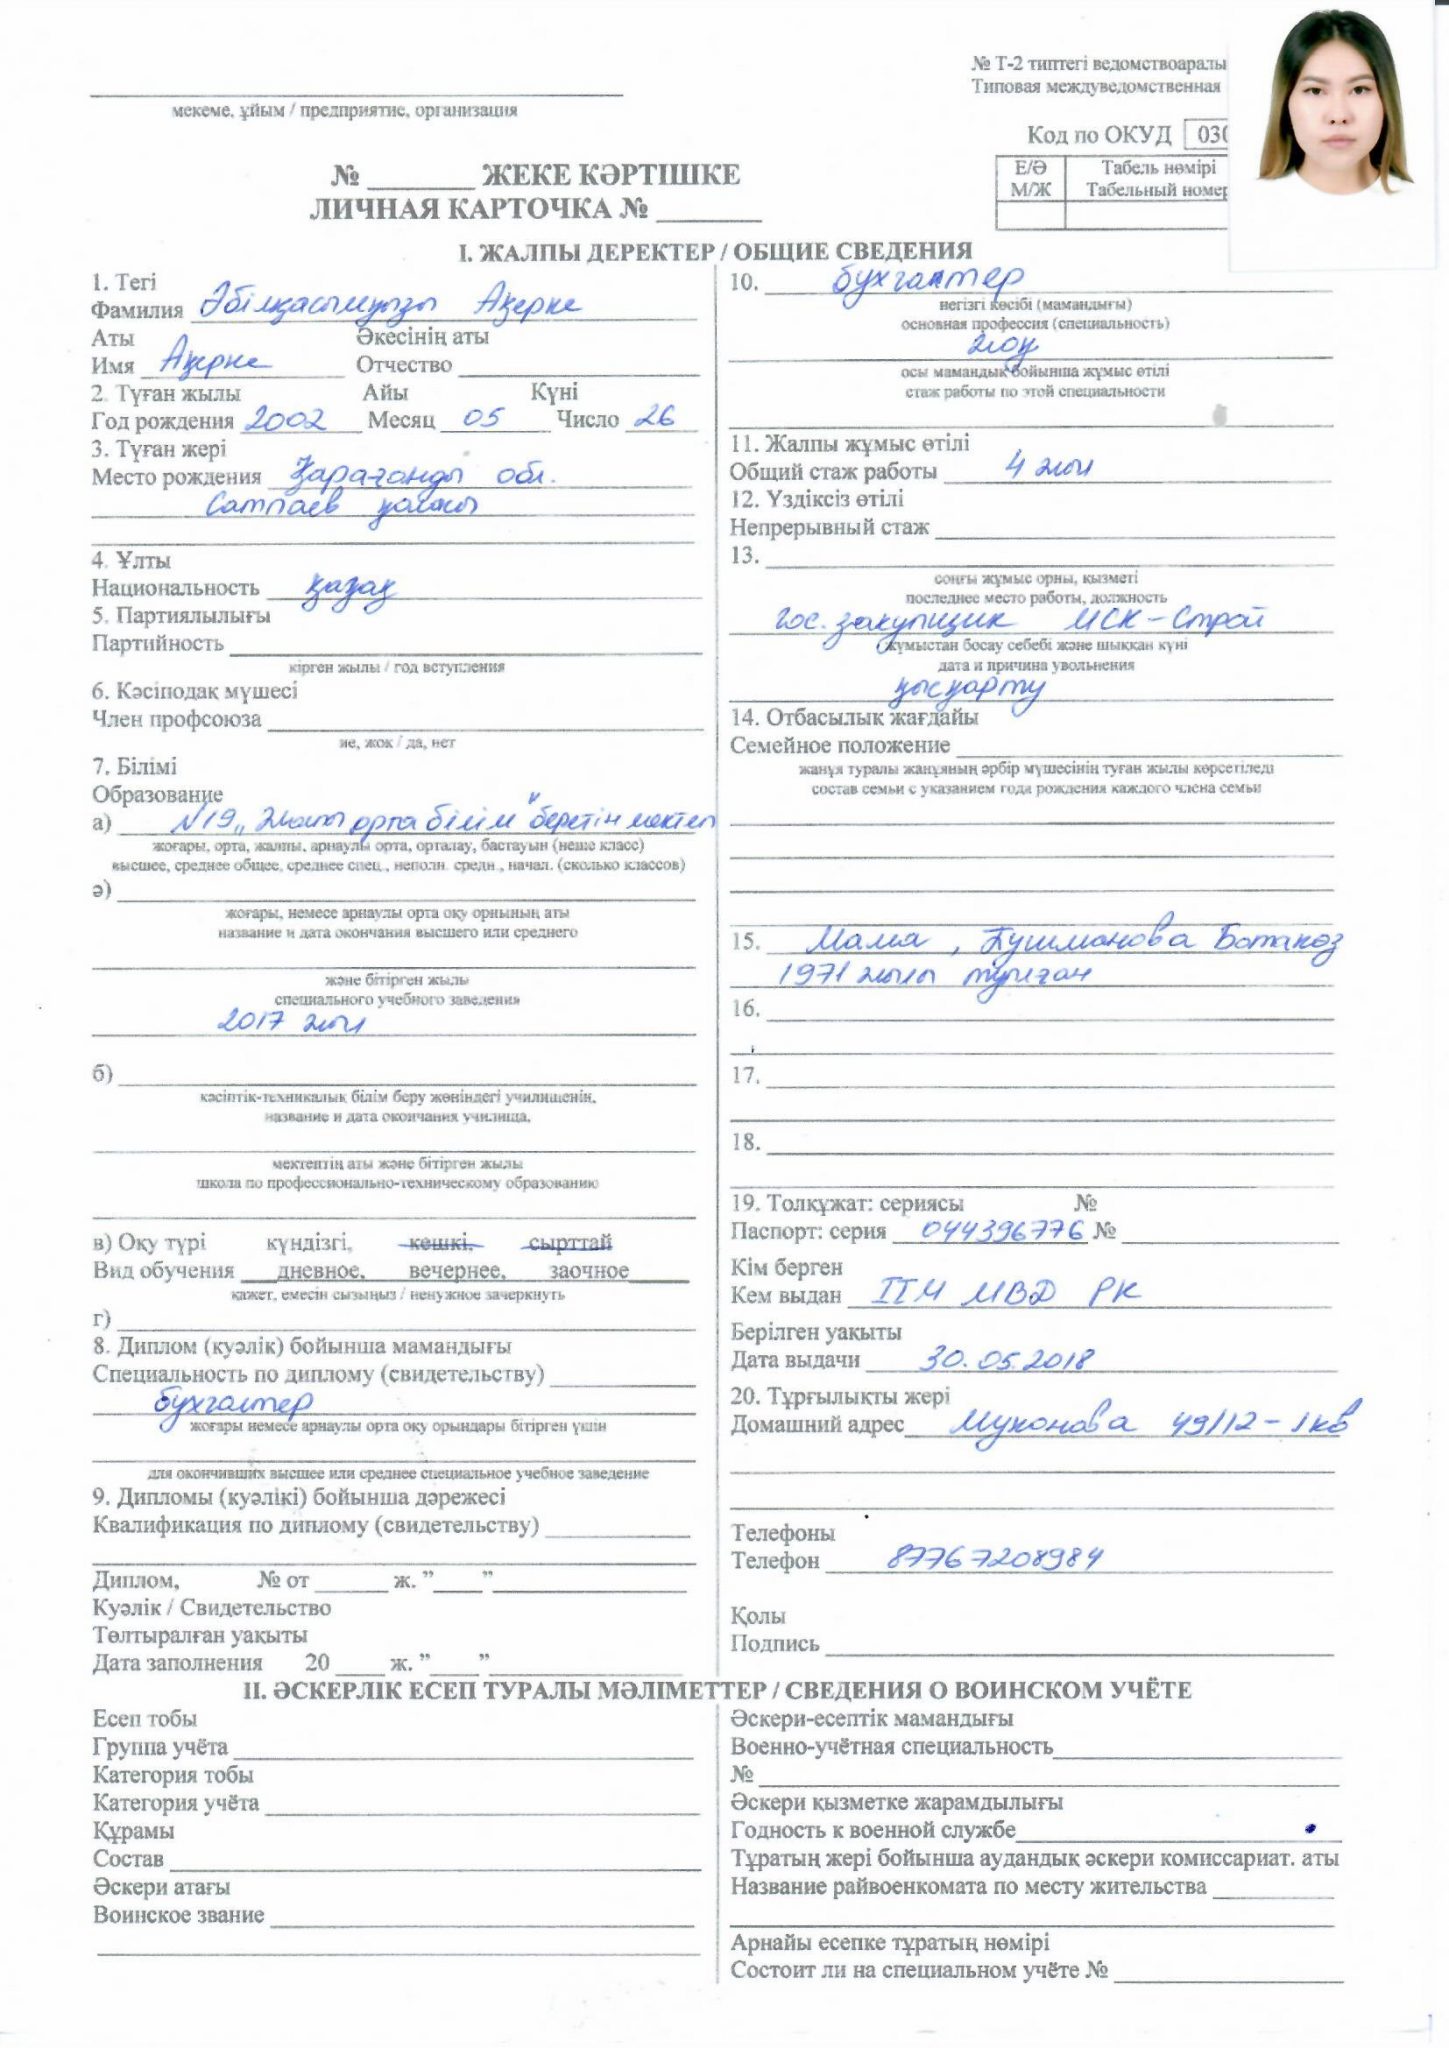 № Т-2 типтегі ведомствоаралы
Типовая междуведомственная
мекеме, ұйым / предприятие, организация
Код по ОКУД 030
№ ЖЕКЕ КӘРТІШКЕ
ЛИЧНАЯ КАРТОЧКА №
Е/Ә Табель нөмірі
М/Ж Табельный номер
I. ЖАЛПЫ ДЕРЕКТЕР / ОБЩИЕ СВЕДЕНИЯ
1. Тегі
Фамилия Әбілқасымқызы Ақерке
Аты Әкесінің аты
Имя Ақерке Отчество
2. Туған жылы Айы Күні
Год рождения 2002 Месяц 05 Число 26
3. Туған жері
Место рождения Қарағанды обл.
Сатпаев қаласы
4. Ұлты
Национальность қазақ
5. Партиялылығы
Партийность
кірген жылы / год вступления
6. Кәсіподақ мүшесі
Член профсоюза
ие, жоқ / да, нет
7. Білімі
Образование
а) №19 „Жалпы орта білім" беретін мектеп
жоғары, орта, жалпы, арнаулы орта, орталау, бастауын (неше класс)
высшее, среднее общее, среднее спец., неполн. средн., начал. (сколько классов)
ә)
жоғары, немесе арнаулы орта оқу орнының аты
название и дата окончания высшего или среднего
және бітірген жылы
специального учебного заведения
2017 жыл
б)
кәсіптік-техникалық білім беру жөніндегі училищенің,
название и дата окончания училища,
мектептің аты және бітірген жылы
школа по профессионально-техническому образованию
в) Оқу түрі күндізгі, кешкі, сырттай
Вид обучения дневное, вечернее, заочное
қажет, емесін сызыңыз / ненужное зачеркнуть
г)
8. Диплом (куәлік) бойынша мамандығы
Специальность по диплому (свидетельству)
бухгалтер
жоғары немесе арнаулы орта оқу орындары бітірген үшін
для окончивших высшее или среднее специальное учебное заведение
9. Дипломы (куәлікі) бойынша дәрежесі
Квалификация по диплому (свидетельству)
Диплом, № от ж. ” ”
Куәлік / Свидетельство
Төлтыралған уақыты
Дата заполнения 20 ж. ” ”
10. бухгалтер
негізгі кәсібі (мамандығы)
основная профессия (специальность)
жоқ
осы мамандық бойынша жұмыс өтілі
стаж работы по этой специальности
11. Жалпы жұмыс өтілі
Общий стаж работы 4 жыл
12. Үздіксіз өтілі
Непрерывный стаж
13.
соңғы жұмыс орны, қызметі
последнее место работы, должность
гос. закупщик МСК-Строй
жұмыстан босау себебі және шыққан күні
дата и причина увольнения
қысқарту
14. Отбасылық жағдайы
Семейное положение
жанұя туралы жанұяның әрбір мүшесінің туған жылы көрсетіледі
состав семьи с указанием года рождения каждого члена семьи
15. Мама, Тушманова Ботакөз
1971 жылы туылған
16.
17.
18.
19. Толқұжат: сериясы №
Паспорт: серия 044396776 №
Кім берген
Кем выдан ІІМ МВД РК
Берілген уақыты
Дата выдачи 30.05.2018
20. Тұрғылықты жері
Домашний адрес Муканова 49/12-1кв
Телефоны
Телефон 87767208984
Қолы
Подпись
II. ӘСКЕРЛІК ЕСЕП ТУРАЛЫ МӘЛІМЕТТЕР / СВЕДЕНИЯ О ВОИНСКОМ УЧЁТЕ
Есеп тобы
Группа учёта
Категория тобы
Категория учёта
Құрамы
Состав
Әскери атағы
Воинское звание
Әскери-есептік мамандығы
Военно-учётная специальность
№
Әскери қызметке жарамдылығы
Годность к военной службе
Тұратың жері бойынша аудандық әскери комиссариат. аты
Название райвоенкомата по месту жительства
Арнайы есепке тұратың нөмірі
Состоит ли на специальном учёте №